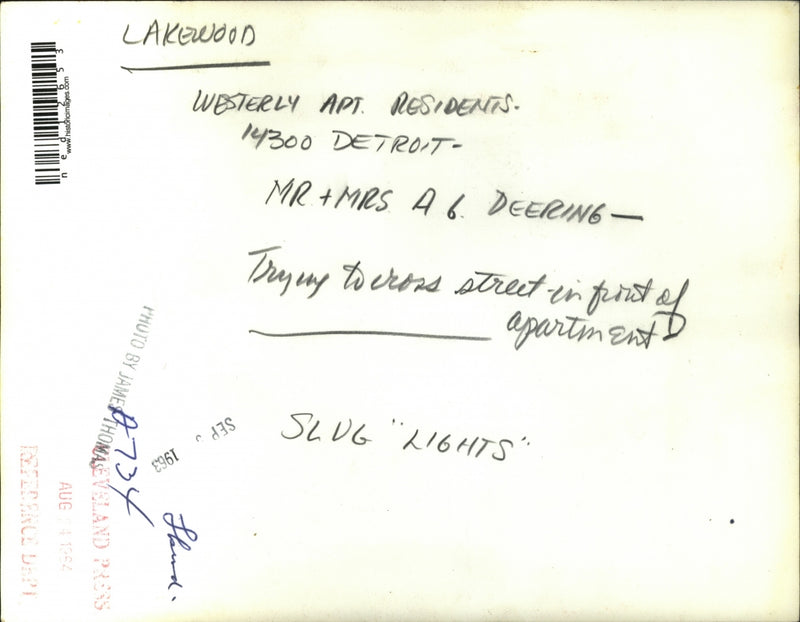 LAKEWOOD
WESTERLY APT. RESIDENTS-
14300 DETROIT-
MR + MRS A G. DEERING —
Trying to cross street in front of
apartment
SLUG "LIGHTS"
ned12653
www.historicimages.com
PHOTO BY JAMES THOMAS
A-734
SEP 1963
CLEVELAND PRESS
AUG 1964
REFERENCE DEPT.